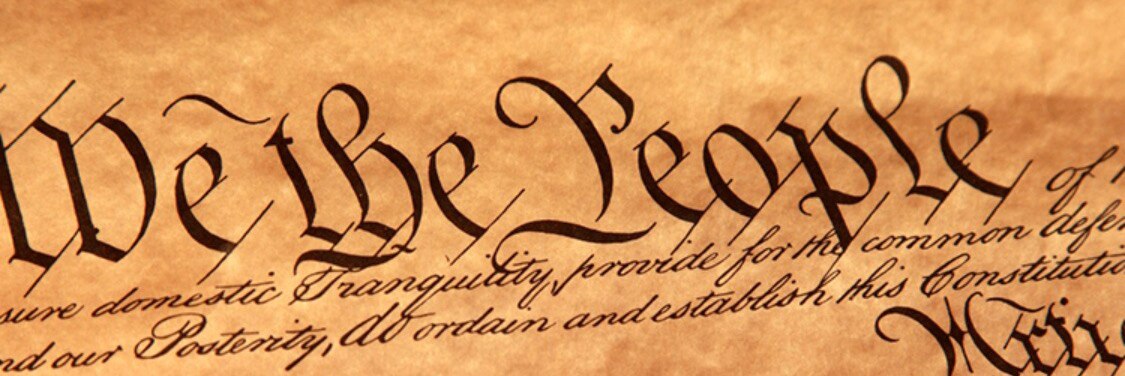 We the People of
sure domestic Tranquility, provide for the common defe
nd our Posterity, do ordain and establish this Constituti